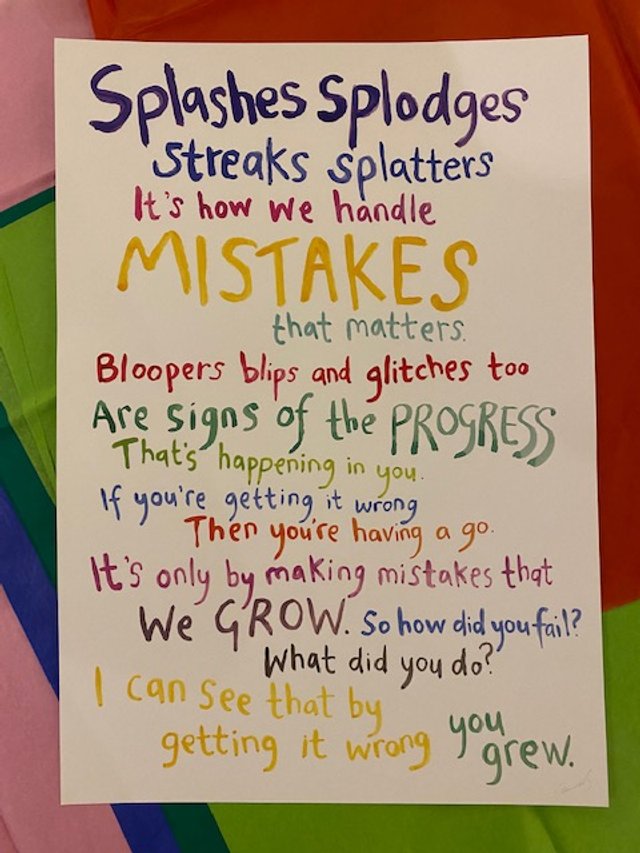 Splashes Splodges
Streaks splatters
It's how we handle
MISTAKES
that matters.
Bloopers blips and glitches too
Are signs of the PROGRESS
That's happening in you.
If you're getting it wrong
Then you're having a go.
It's only by making mistakes that
We GROW. So how did you fail?
What did you do?
I can see that by
getting it wrong you
grew.